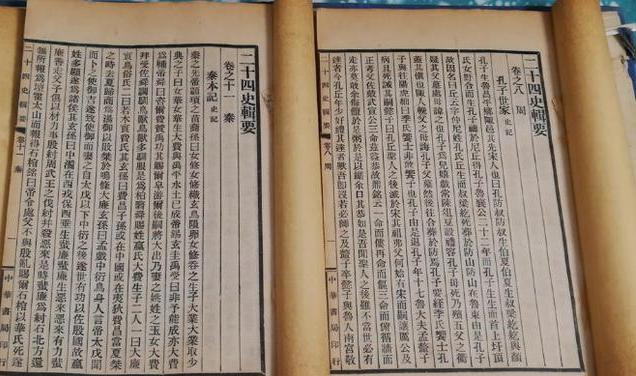 二十四史輯要
卷之八 周
孔子世家 史記
孔子生魯昌平鄉陬邑其先宋人也曰孔防叔防叔生伯夏伯夏生叔梁紇紇與顏
氏女野合而生孔子禱於尼丘得孔子魯襄公二十二年而孔子生生而首上圩頂
故因名曰丘云字仲尼姓孔氏丘生而叔梁紇死葬於防山防山在魯東由是孔子
疑其父墓處母諱之也孔子為兒嬉戲常陳俎豆設禮容孔子母死乃殯五父之衢
蓋其慎也郰人輓父之母誨孔子父墓然後往合葬於防焉孔子要絰季氏饗士孔
子與往陽虎絀曰季氏饗士非敢饗子也孔子由是退孔子年十七魯大夫孟釐子
病且死誡其嗣懿子曰孔丘聖人之後滅於宋其祖弗父何始有宋而嗣讓厲公及
正考父佐戴武宣公三命茲益恭故鼎銘云一命而僂再命而傴三命而俯循牆而
走亦莫敢余侮饘於是粥於是以餬余口其恭如是吾聞聖人之後雖不當世必有
達者今孔丘年少好禮其達者歟吾即沒若必師之及釐子卒懿子與魯人南宮敬
二十四史輯要 卷八 周 一 中華書局印行
二十四史輯要
卷之十一 秦
秦本記 史記
秦之先帝顓頊之苗裔孫曰女脩女脩織玄鳥隕卵女脩吞之生子大業大業取少
典之子曰女華女華生大費與禹平水土已成帝錫玄圭禹受曰非予能成亦大費
為輔帝舜曰咨爾費贊禹功其賜爾皁游爾後嗣將大出乃妻之姚姓之玉女大費
拜受佐舜調馴鳥獸鳥獸多馴服是為柏翳舜賜姓嬴氏大費生子二人一曰大廉
實鳥俗氏二曰若木實費氏其玄孫曰費昌子孫或在中國或在夷狄費昌當夏桀
之時去夏歸商為湯御以敗桀於鳴條大廉玄孫曰孟戲中衍鳥身人言帝太戊聞
而卜之使御吉遂致使御而妻之自太戊以下中衍之後遂世有功以佐殷國故嬴
姓多顯遂為諸侯其玄孫曰中潏在西戎保西垂生蜚廉蜚廉生惡來惡來有力蜚
廉善走父子俱以材力事殷紂周武王之伐紂并殺惡來是時蜚廉為紂石北方還
無所報為壇霍太山而報得石棺銘曰帝令處父不與殷亂賜爾石棺以華氏死遂
二十四史輯要 卷十一 秦 一 中華書局印行